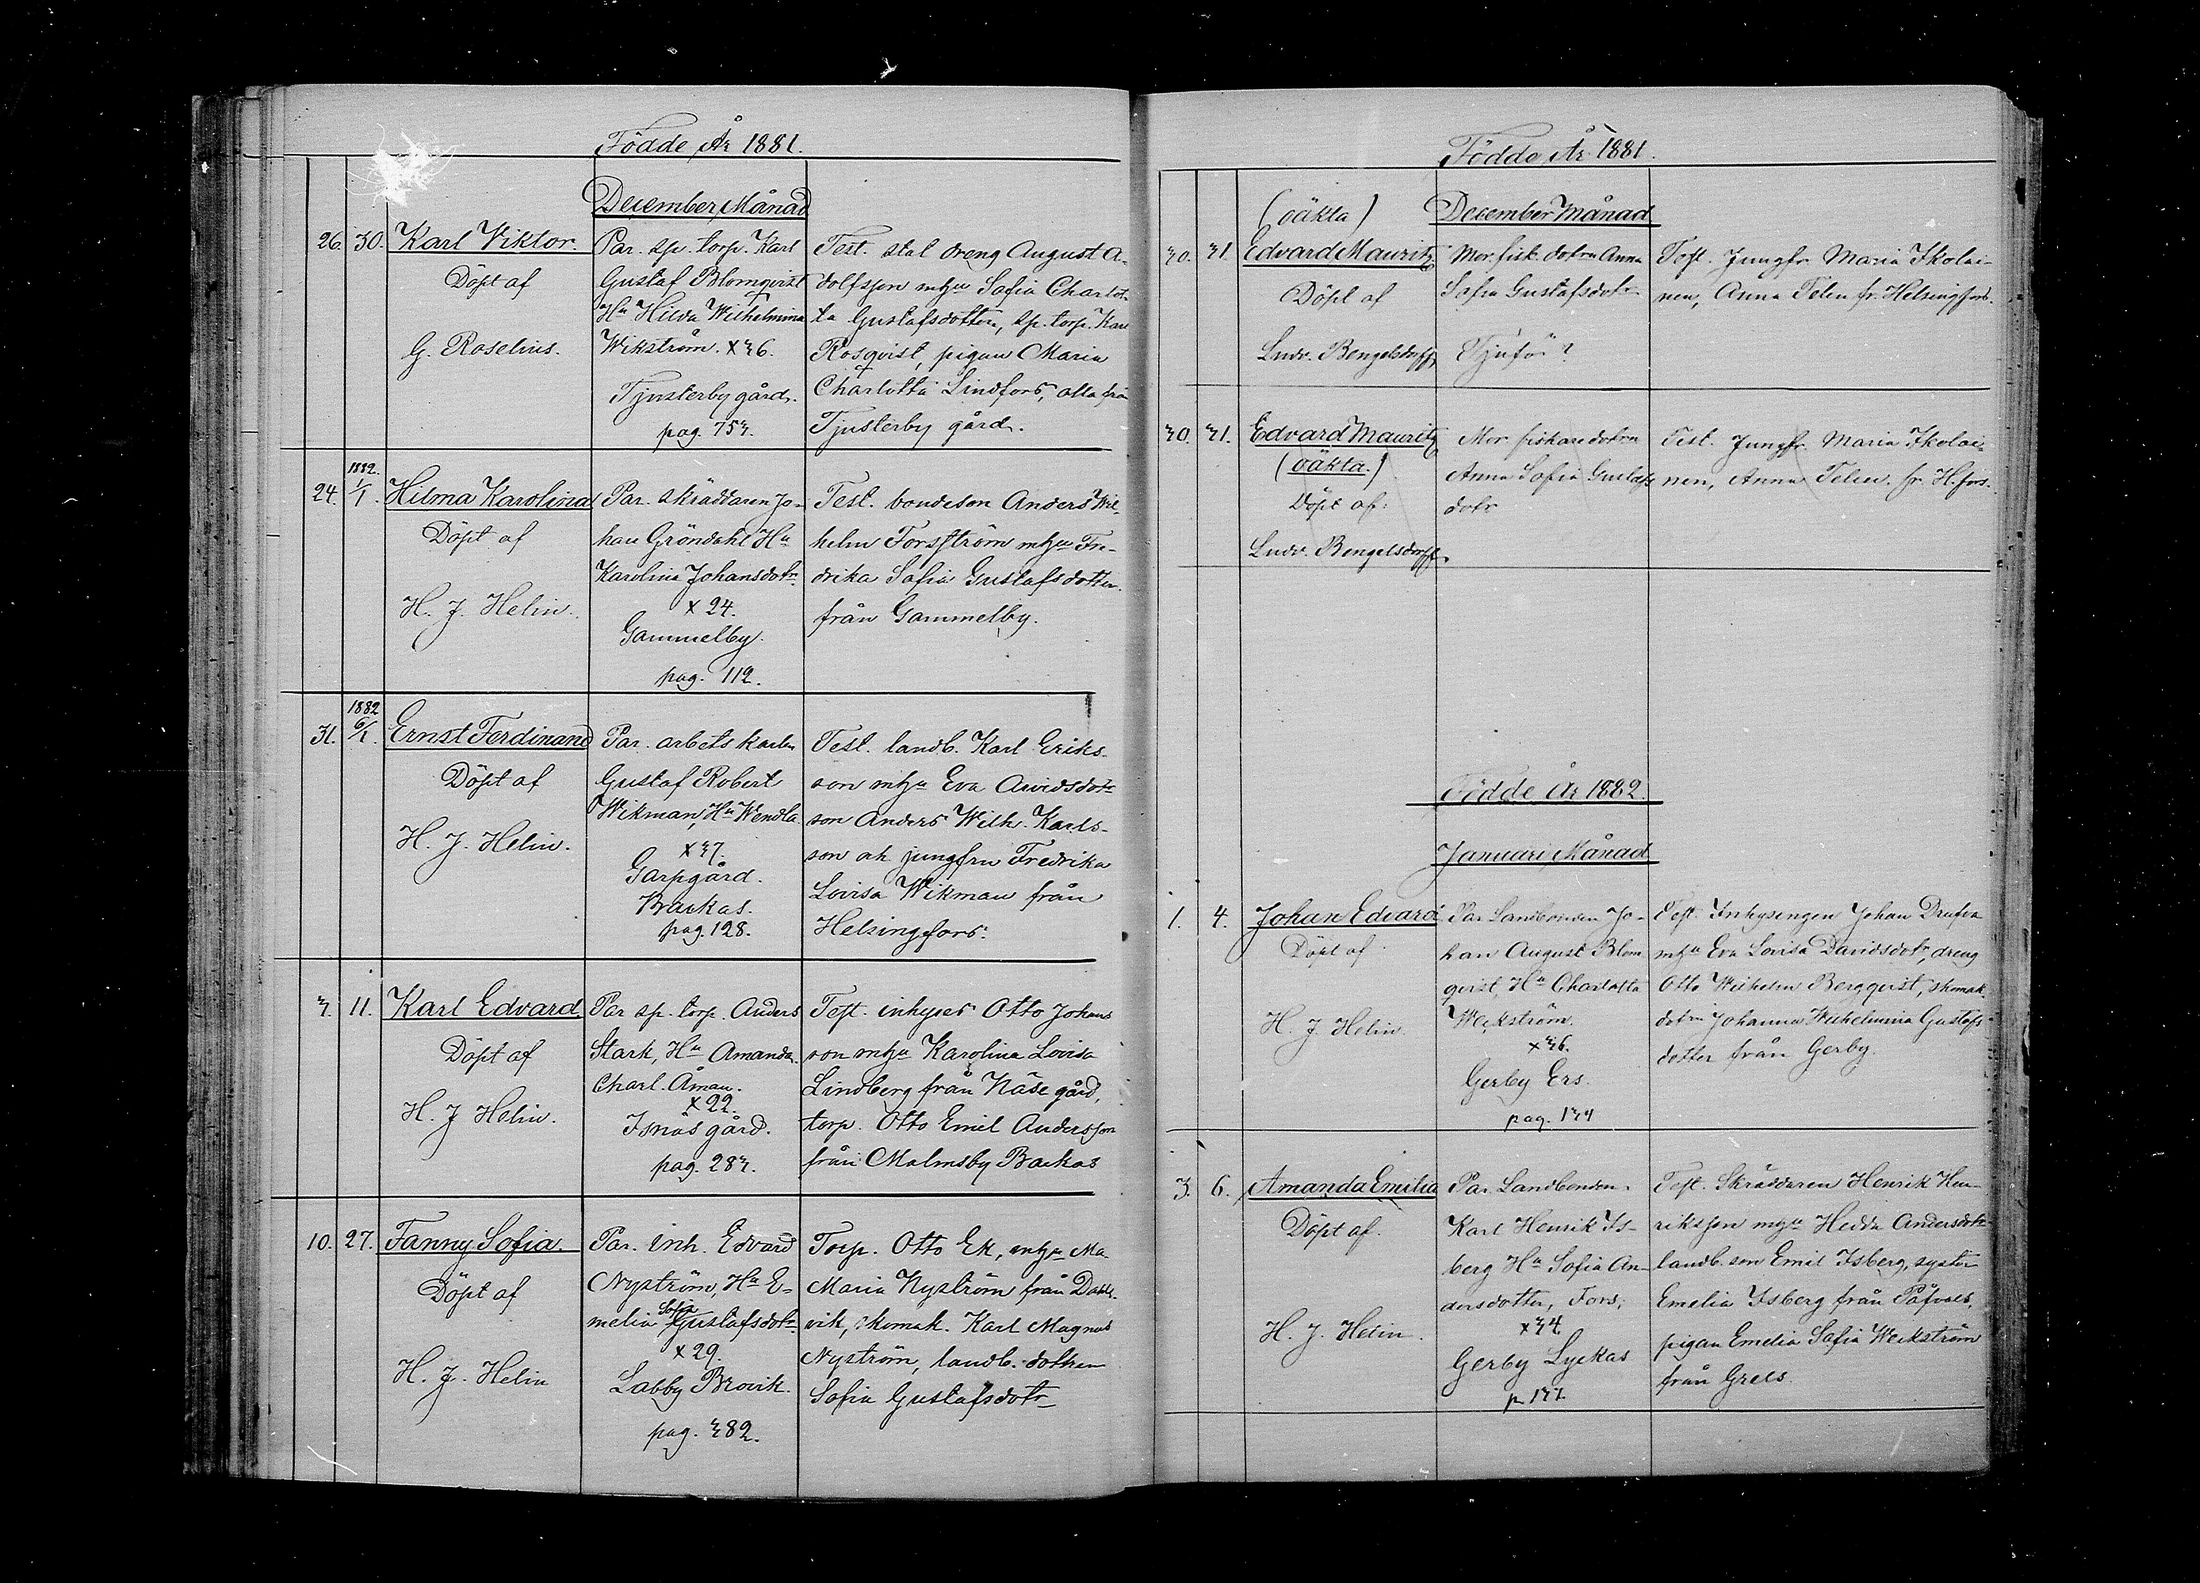 Födde År 1881.
December Månad
26. 30. Karl Viktor
Döpt af
G. Roselius.
Par. sp. torp. Karl
Gustaf Blomqvist
Hu Hilda Wilhelmina
Wikström. x 36.
Tjusterby gård.
pag. 753.
Test. stal dreng August A-
dolfsson mhu Sofia Charlot-
ta Gustafsdotter, sp. torp. Karl
Rosqvist, pigan Maria
Charlotta Lindfors, alla från
Tjusterby gård.
24. 1882. 1/1. Hilma Karolina
Döpt af
H. J. Helin.
Par. skräddaren Jo-
han Gröndahl Hu
Karolina Johansdotr
x 24.
Gammelby.
pag. 112.
Test. bondeson Anders Wil-
helm Forsström mhu Fre-
drika Sofia Gustafsdotter
från Gammelby.
31. 1882 6/1. Ernst Ferdinand
Döpt af
H. J. Helin.
Par. arbets karlen
Gustaf Robert
Wikman, Hu Wendla
x 37.
Garpgård.
Backas.
pag. 128.
Test. landb. Karl Eriks-
son mhu Eva Arvidsdotr
son Anders Wilh. Karls-
son ok jungfru Fredrika
Lovisa Wikman från
Helsingfors.
3. 11. Karl Edvard
Döpt af
H. J. Helin.
Par sp. torp. Anders
Stark, Hu Amanda
Charl. Åman.
x 22.
Isnäs gård.
pag. 283.
Test. inhyses Otto Johans
son mhu Karolina Lovisa
Lindberg från Näse gård,
torp. Otto Emil Andersson
från Malmsby Backas
10. 27. Fanny Sofia
Döpt af
H. J. Helin
Par. inh. Edvard
Nyström, Hu E-
melia Sofia Gustafsdotr
x 29.
Labby Brovik.
pag. 382.
Torp. Otto Ek, mhu Ma
Maria Nyström från
vik, skomak. Karl Magnus
Nyström, landb. dottren
Sofia Gustafsdotr
Födde År 1881.
(oäkta) December Månad
30. 31. Edvard Mauritz
Döpt af
Ludv. Bengelsdorff
Mor. fisk. dotrn Anna
Sofia Gustafsdotr
Tjufö ?
Test. Jungfr. Maria Ikolai-
nen, Anna Telen fr. Helsingfors.
30. 31. Edvard Mauritz
(oäkta.)
Döpt af.
Ludv. Bengelsdorff
Mor fiskaredotrn
Anna Sofia Gustafs
dotr
Test. Jungfr. Maria Ikolai-
nen, Anna Telen. fr. H.fors.
Födde År 1882.
Januari Månad
1. 4. Johan Edvard
Döpt af
H. J. Helin.
Par Landbonden Jo-
han August Blom
qvist, Hu Charlotta
Weckström.
x 36.
Gerby Ers.
pag. 134
Test. Inhysingen Johan
mhu Eva Lovisa Davidsdotr, dreng
Otto Wilhelm Bergqvist, skomak.
dotrn Johanna Wilhelmina Gustafs-
dotter från Gerby.
3. 6. Amanda Emilia
Döpt af.
H. J. Helin.
Par. Landbonden
Karl Henrik Is-
berg Hu Sofia An-
dersdotter, Fors,
x 34
Gerby Lyckas
p. 137.
Test. Skräddaren Henrik Hen-
riksson mhu Hedda Andersdotr
landb. son Emil Isberg, syster
Emelia Isberg från Påfvals,
pigan Emelia Sofia Weckström
från Grels.